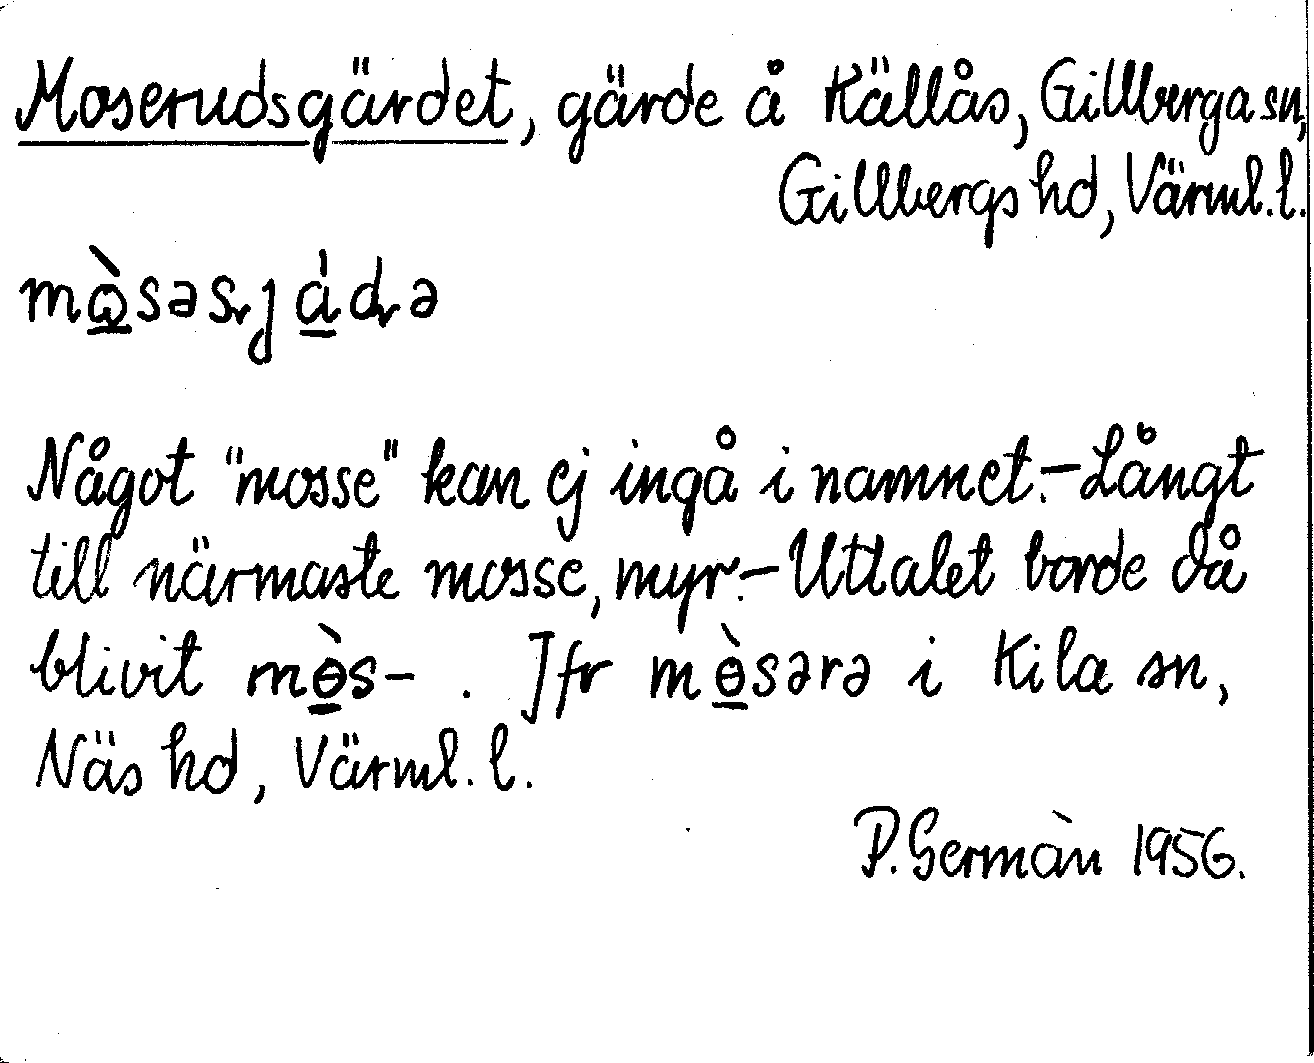 Moserudsgärdet, gärde å Källås, Gillberga sn,
Gillbergs hd, Värml. l.
Något "mosse" kan ej ingå i namnet. – Långt
till närmaste mosse, myr. – Uttalet borde då
blivit mɵ̀s- . Jfr mɵ̀sərə i Kila sn,
Näs hd, Värml. l.
P. Germàn 1956.